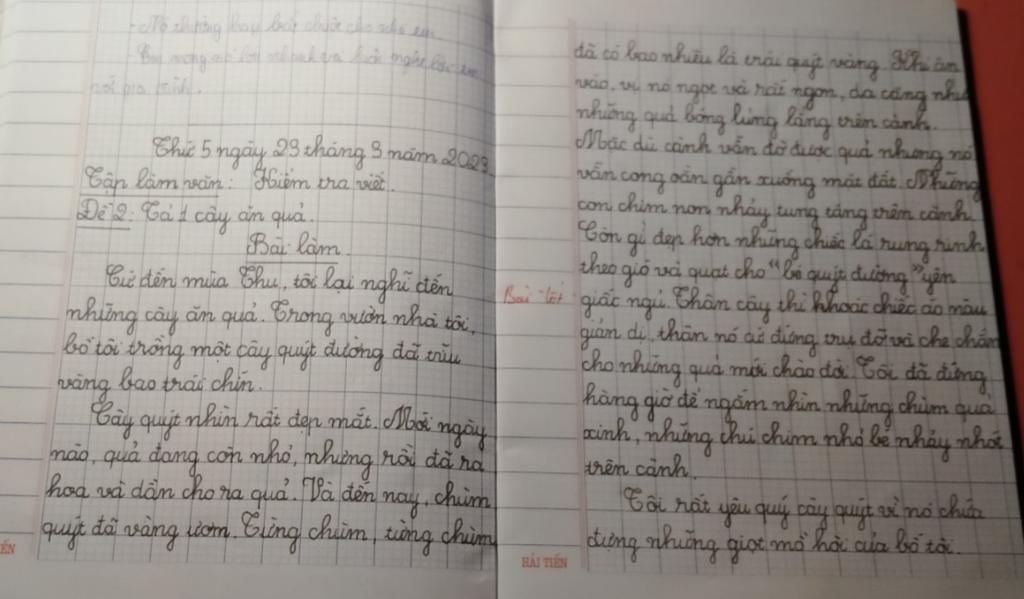 - Nó thường hay bắt chuột cho nhà em
nơi gia đình.
Thứ 5 ngày 23 tháng 3 năm 2023
Tập làm văn: Kiểm tra viết.
Đề 2: Tả 1 cây ăn quả.
Bài làm
Cứ đến mùa Thu, tôi lại nghĩ đến
những cây ăn quả. Trong vườn nhà tôi,
bố tôi trồng một cây quýt đường đã trĩu
vàng bao trái chín.
Cây quýt nhìn rất đẹp mắt. Mới ngày
nào, quả đang còn nhỏ, nhưng rồi đã ra
hoa và dần cho ra quả. Và đến nay, chùm
quýt đã vàng ươm. Từng chùm, từng chùm
HẢI TIẾN
đã có bao nhiêu là trái quýt vàng. Khi ăn
vào, vị nó ngọt và rất ngon, da căng như
những quả bóng lủng lẳng trên cành.
Mặc dù cành vẫn đỡ được quả nhưng nó
vẫn cong oằn gần xuống mặt đất. Những
con chim non nhảy tung tăng trên cành.
Còn gì đẹp hơn những chiếc lá rung rinh
theo gió và quạt cho "bé quýt đường" yên
giấc ngủ. Thân cây thì khoác chiếc áo màu
giản dị, thân nó cứ đứng trụ đỡ và che chắn
cho những quả mới chào đời. Tôi đã đứng
hàng giờ để ngắm nhìn những chùm quả
xinh, những chú chim nhỏ bé nhảy nhót
trên cành.
Tôi rất yêu quý cây quýt vì nó chứa
đựng những giọt mồ hôi của bố tôi.
HẢI TIẾN